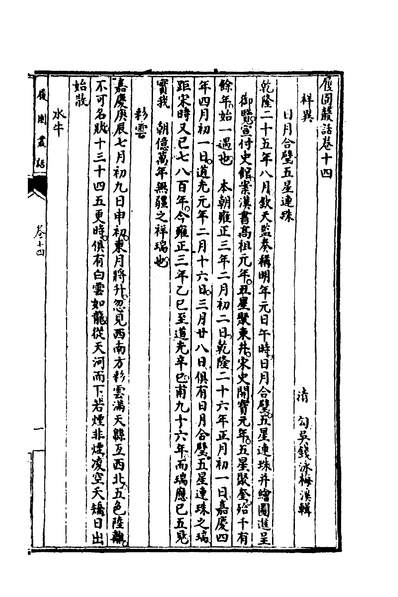 履園叢話卷十四
清　勾吳錢泳梅溪輯
祥異
日月合璧五星連珠
乾隆二十五年八月欽天監奏稱明年元日午時日月合璧五星連珠并繪圖進呈
御覽宣付史館案漢書高祖元年五星聚東井宋史開寶元年五星聚奎殆千有
餘年始一遇也　本朝雍正三年二月初二日乾隆二十六年正月初一日嘉慶四
年四月初一日道光元年二月十六日三月廿八日俱有日月合璧五星連珠之瑞
距宋時又已七八百年今雍正三年乙巳至道光辛巳甫九十六年而瑞應已五見
實我　朝億萬年無疆之祥瑞也
彩雲
嘉慶庚辰七月初九日申初東月將升忽見西南方彩雲滿天緜亙西北五色陸離
不可名狀十三十四五更時俱有白雲如龍從天河而下若煙非煙凌空夭矯日出
始散
水牛
履園叢話
卷十四
一